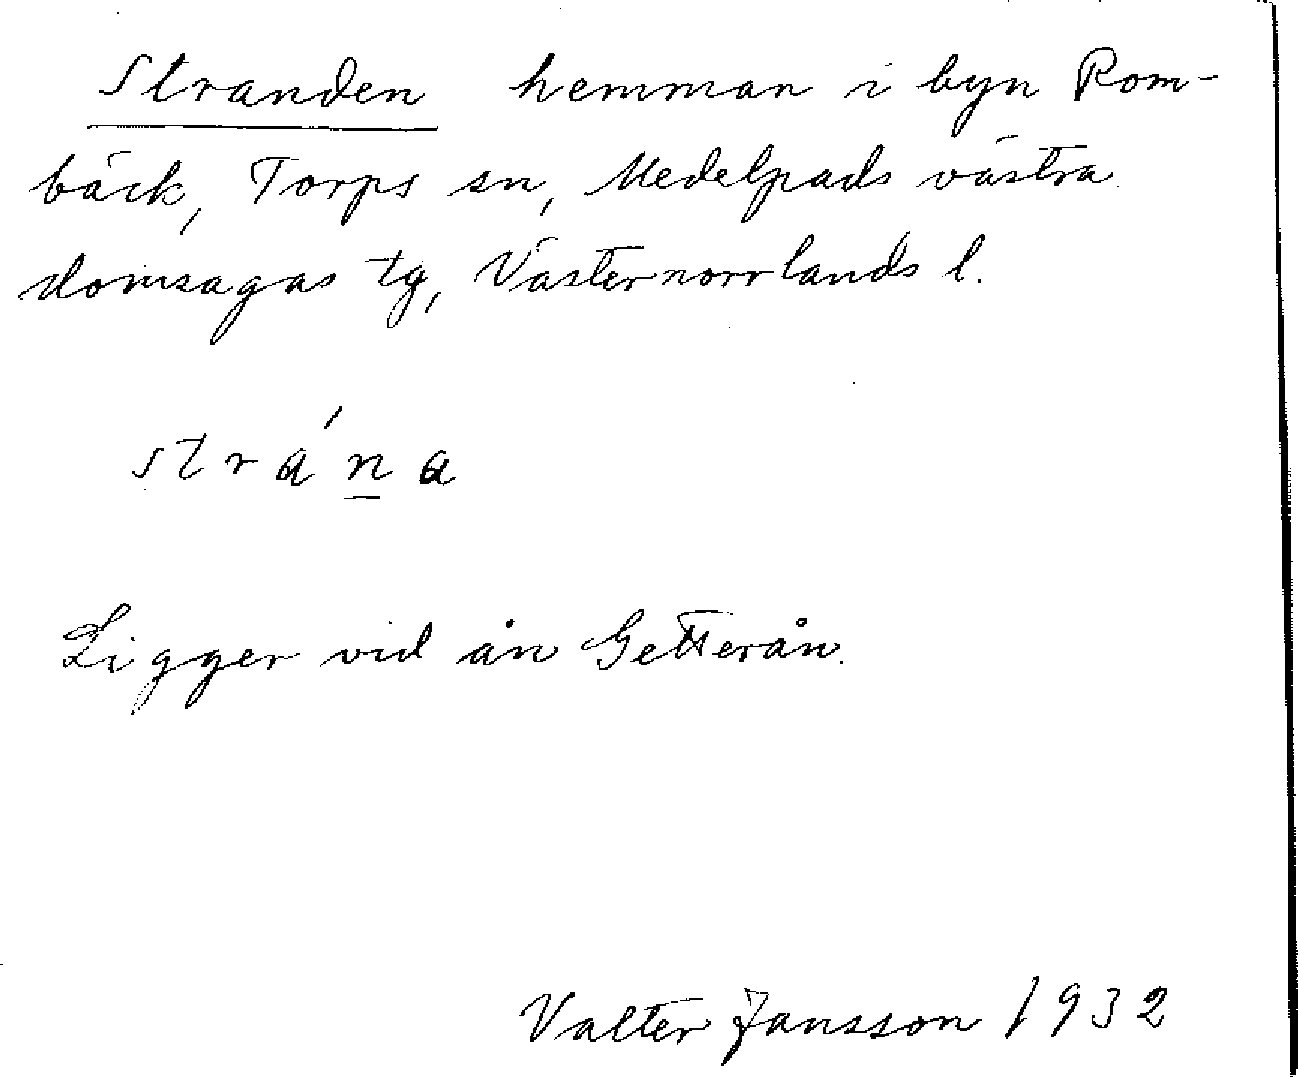 Stranden hemman i byn Rom-
bäck, Torps sn, Medelpads västra
domsagas tg, Västernorrlands l.
strá̱na
Ligger vid ån Getterån.
Valter Jansson 1932